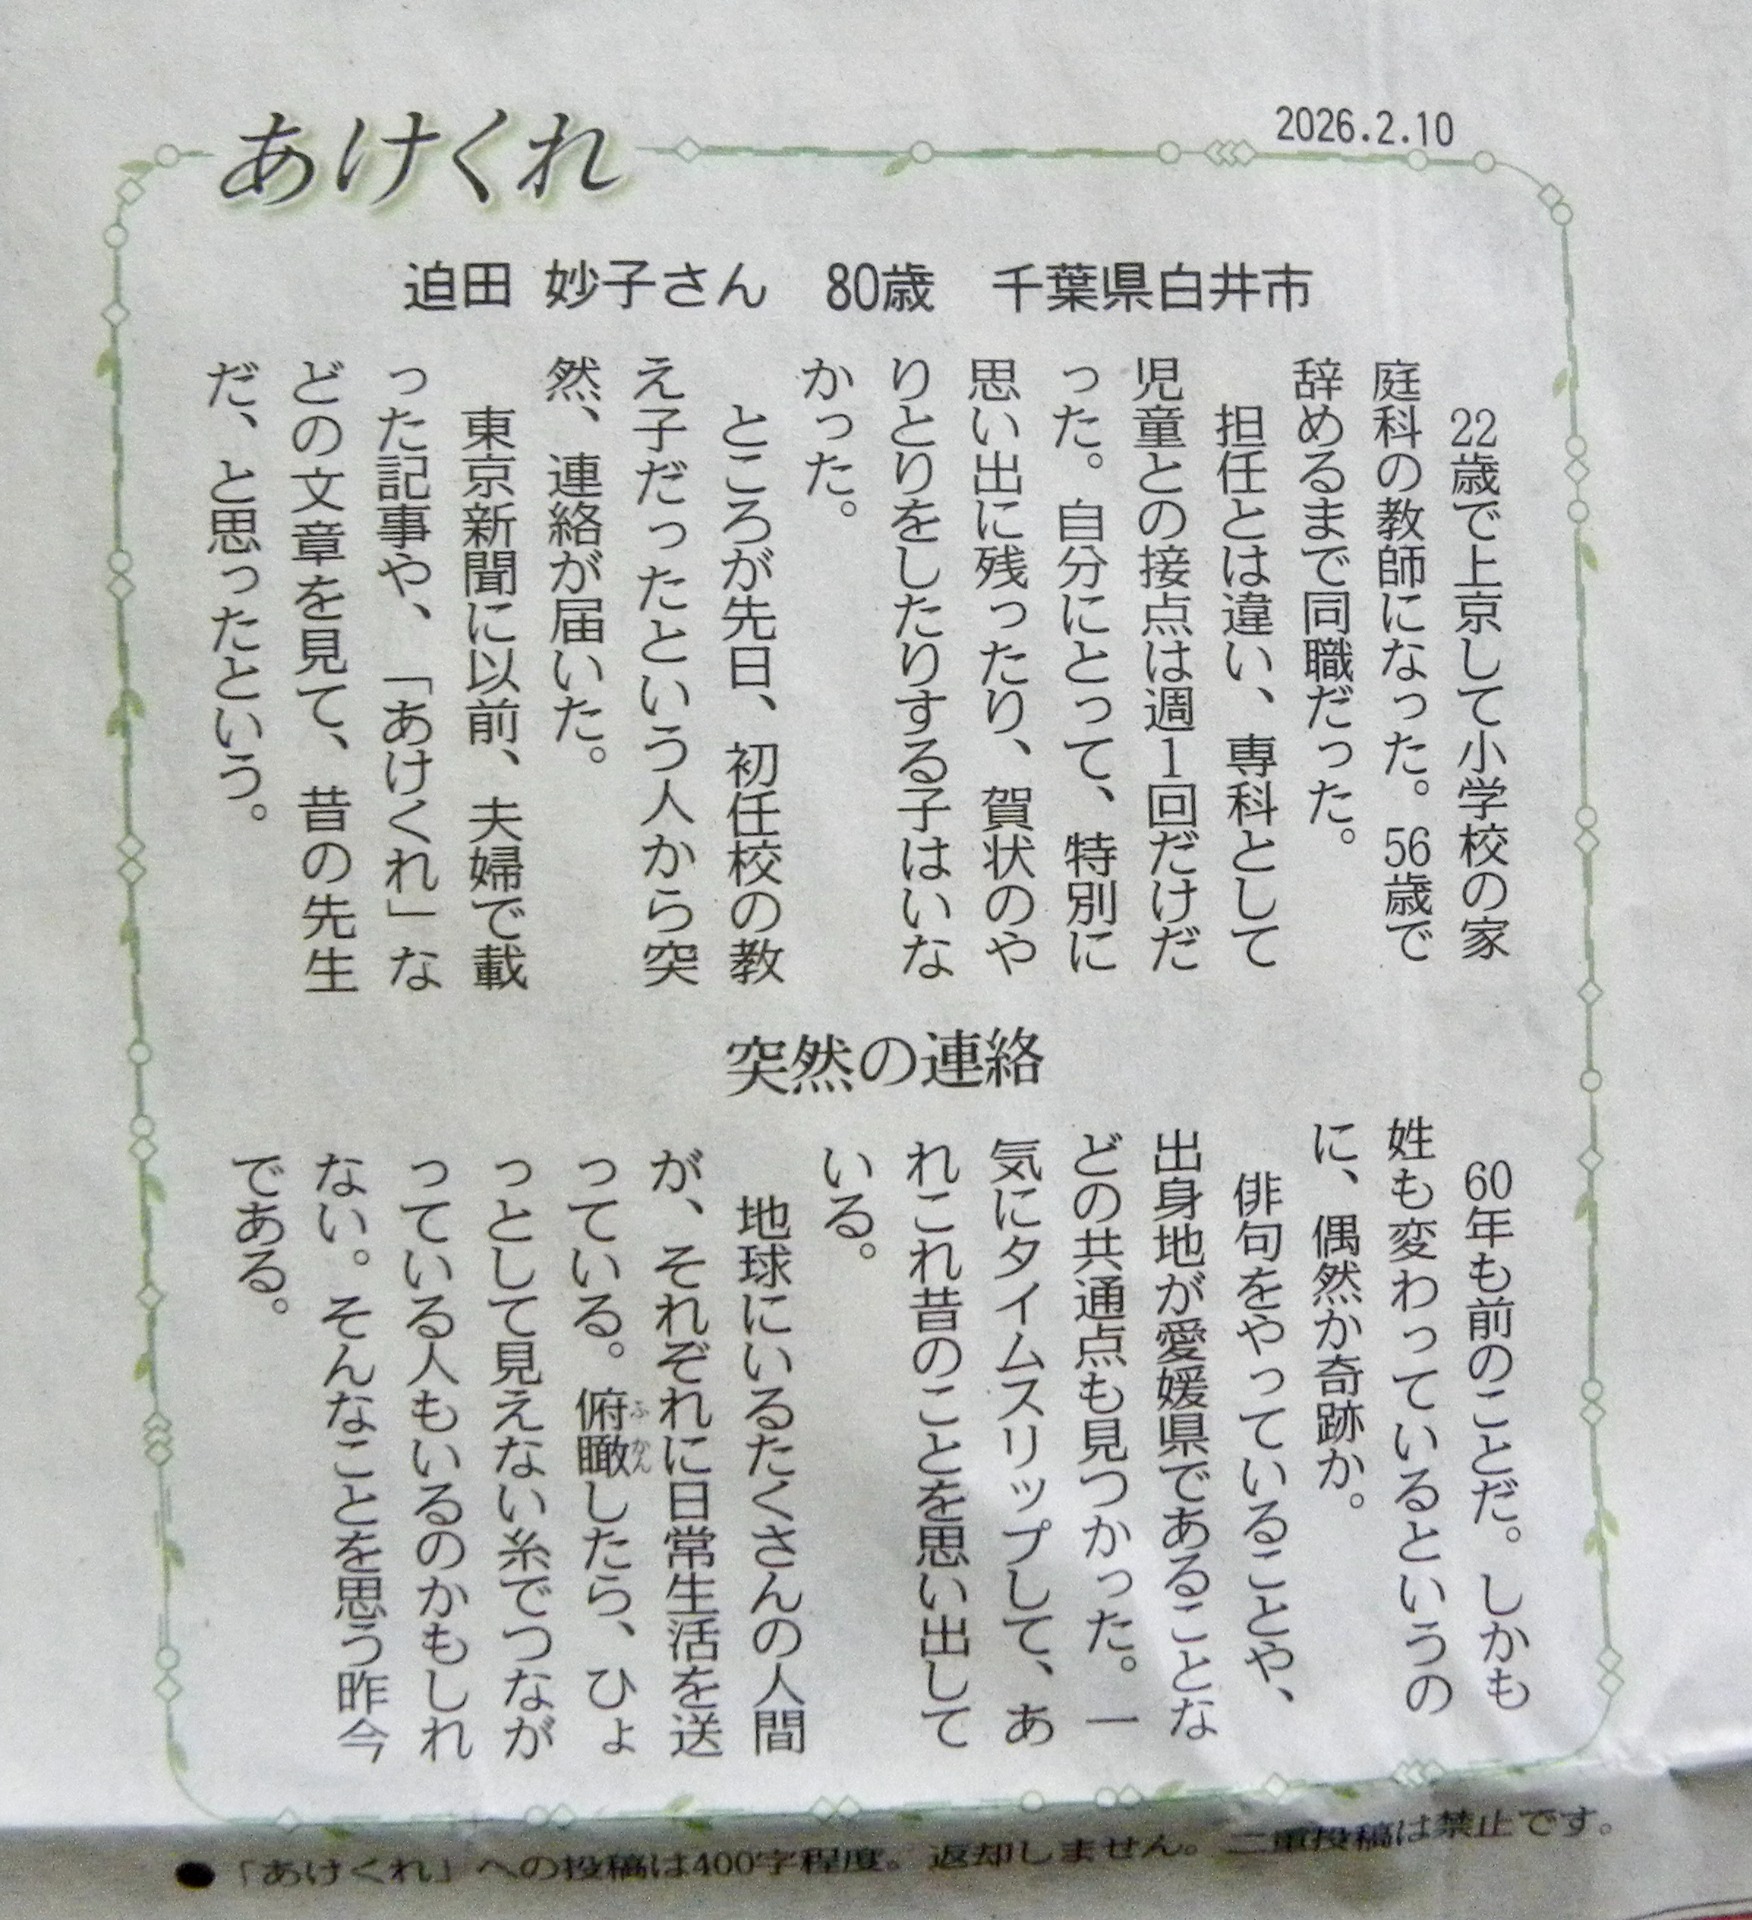 2026.2.10
あけくれ
迫田 妙子さん 80歳 千葉県白井市
22歳で上京して小学校の家
庭科の教師になった。56歳で
辞めるまで同職だった。
担任とは違い、専科として
児童との接点は週1回だけだ
った。自分にとって、特別に
思い出に残ったり、賀状のや
りとりをしたりする子はいな
かった。
ところが先日、初任校の教
え子だったという人から突
然、連絡が届いた。
東京新聞に以前、夫婦で載
った記事や、「あけくれ」な
どの文章を見て、昔の先生
だ、と思ったという。
突然の連絡
60年も前のことだ。しかも
姓も変わっているというの
に、偶然か奇跡か。
俳句をやっていることや、
出身地が愛媛県であることな
どの共通点も見つかった。一
気にタイムスリップして、あ
れこれ昔のことを思い出して
いる。
地球にいるたくさんの人間
が、それぞれに日常生活を送
っている。俯瞰ふかんしたら、ひょ
っとして見えない糸でつなが
っている人もいるのかもしれ
ない。そんなことを思う昨今
である。
●「あけくれ」への投稿は400字程度。返却しません。二重投稿は禁止です。